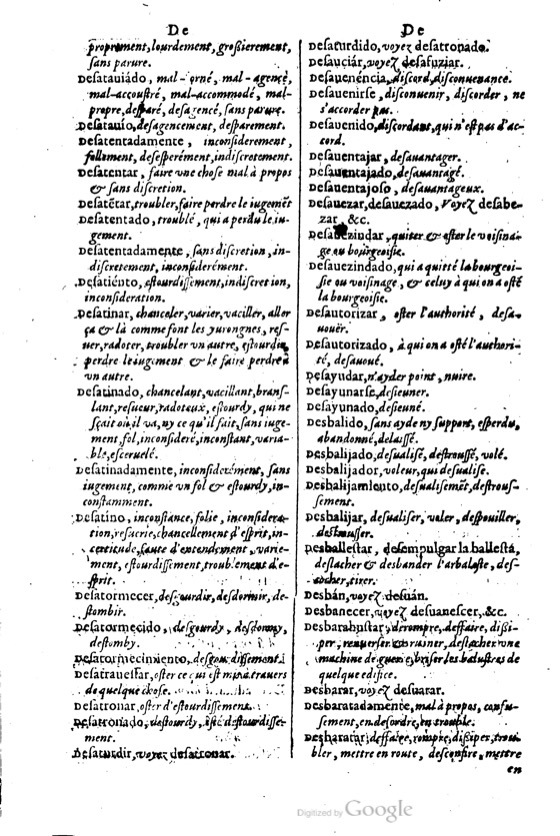 De
proprement, lourdement, grossierement,
sans parure.
Desatauiádo, mal-orné, mal-agencé,
mal-accoustré, mal-accommodé, mal-
propre, desparé, desagencé, sans parure.
Desatauío, desagencement, desparement.
Desatentadamente, inconsiderement,
follement, desesperément, indiscretement.
Desatentar, faire une chose mal à propos
& sans discretion.
Desatẽtar, troubler, faire perdre le iugemẽt
Desatentado, troublé, qui a perdu le iu-
gement.
Desatentadamente, sans discretion, in-
discretement, inconsiderément.
Desatiénto, estourdissement, indiscretion,
inconsideration.
Desatinar, chanceler, varier, vaciller, aller
ça & là comme font les yurongnes, res-
uer, radoter, troubler un autre, estourdir,
perdre le iugement & le faire perdre à
vn autre.
Desatinado, chancelant, vacillant, brans-
lant, resueur, radoteux, estourdy, qui ne
sçait où il va, ny ce qu'il fait, sans iuge-
ment, fol, inconsideré, inconstant, varia-
ble, esceruelé.
Desatinadamente, inconsiderément, sans
iugement, comme vn fol & estourdy, in-
constamment.
Desatino, inconstance, folie, inconsidera-
tion, resuerie, chancellement d'esprit, in-
certitude, faute d'entendement, varie-
ment, estourdissement, troublement d'e-
sprit.
Desatormecer, desgourdir, desdormir, de-
stombir.
Desatormecido, desgourdy, desdormy,
destomby.
Desatormecimiento, desgourdissement.
Desatrauessar, oster ce qui est mis à trauers
de quelque chose.
Desatronar, oster d'estourdissement.
Desatronado, destourdy, osté d'estourdisse-
ment.
Desaturdir, voyez desatronar.
De
Desaturdido, voyez desatronado.
Desauciár, voyez desafuziar.
Desauenéncia, discord, disconuenance.
Desauenirse, disconuenir, discorder, ne
s'accorder pas.
Desauenido, discordant, qui n'est pas d'ac-
cord.
Desauentajar, desauantager.
Desauentajado, desauantagé.
Desauentajoso, desauantageux.
Desauezar, desauezado, Voyez desabe-
zar, &c.
Desauezindar, quiter & oster le voisina-
ge ou bourgeoisie.
Desauezindado, qui a quitté la bourgeoi-
sie ou voisinage, & celuy à qui on a osté
la bourgeoisie.
Desautorizar, oster l'authorité, desa-
uouër.
Desautorizado, à qui on a osté l'authori-
té, desauoué.
Desayudar, n'ayder point, nuire.
Desayunarse, desieuner.
Desayunado, desieuné.
Desbalido, sans ayde ny support, esperdu,
abandonné, delaissé.
Desbalijado, desualisé, destroussé, volé.
Desbalijador, voleur, qui desualise.
Desbalijamiento, desualisemẽt, destrous-
sement.
Desbalijar, desualiser, voler, despouiller,
destrousser.
Desballestar, desempulgar la ballesta,
destacher & desbander l'arbaleste, des-
cocher, tirer.
Desbán, voyez desuán.
Desbanecer, voyez desuanescer, &c.
Desbarahustar, derompre, deffaire, dissi-
per, renuerser & ruiner, destacher vne
machine de guerre, briser les balustres de
quelque edifice.
Desbarar, voyez desuarar.
Desbaratadamente, mal à propos, confu-
sement, en desordre, en trouble.
Desbaratar, deffaire, rompre, dissiper, trou-
bler, mettre en route, desconfire, mettre
en
Digitized by Google